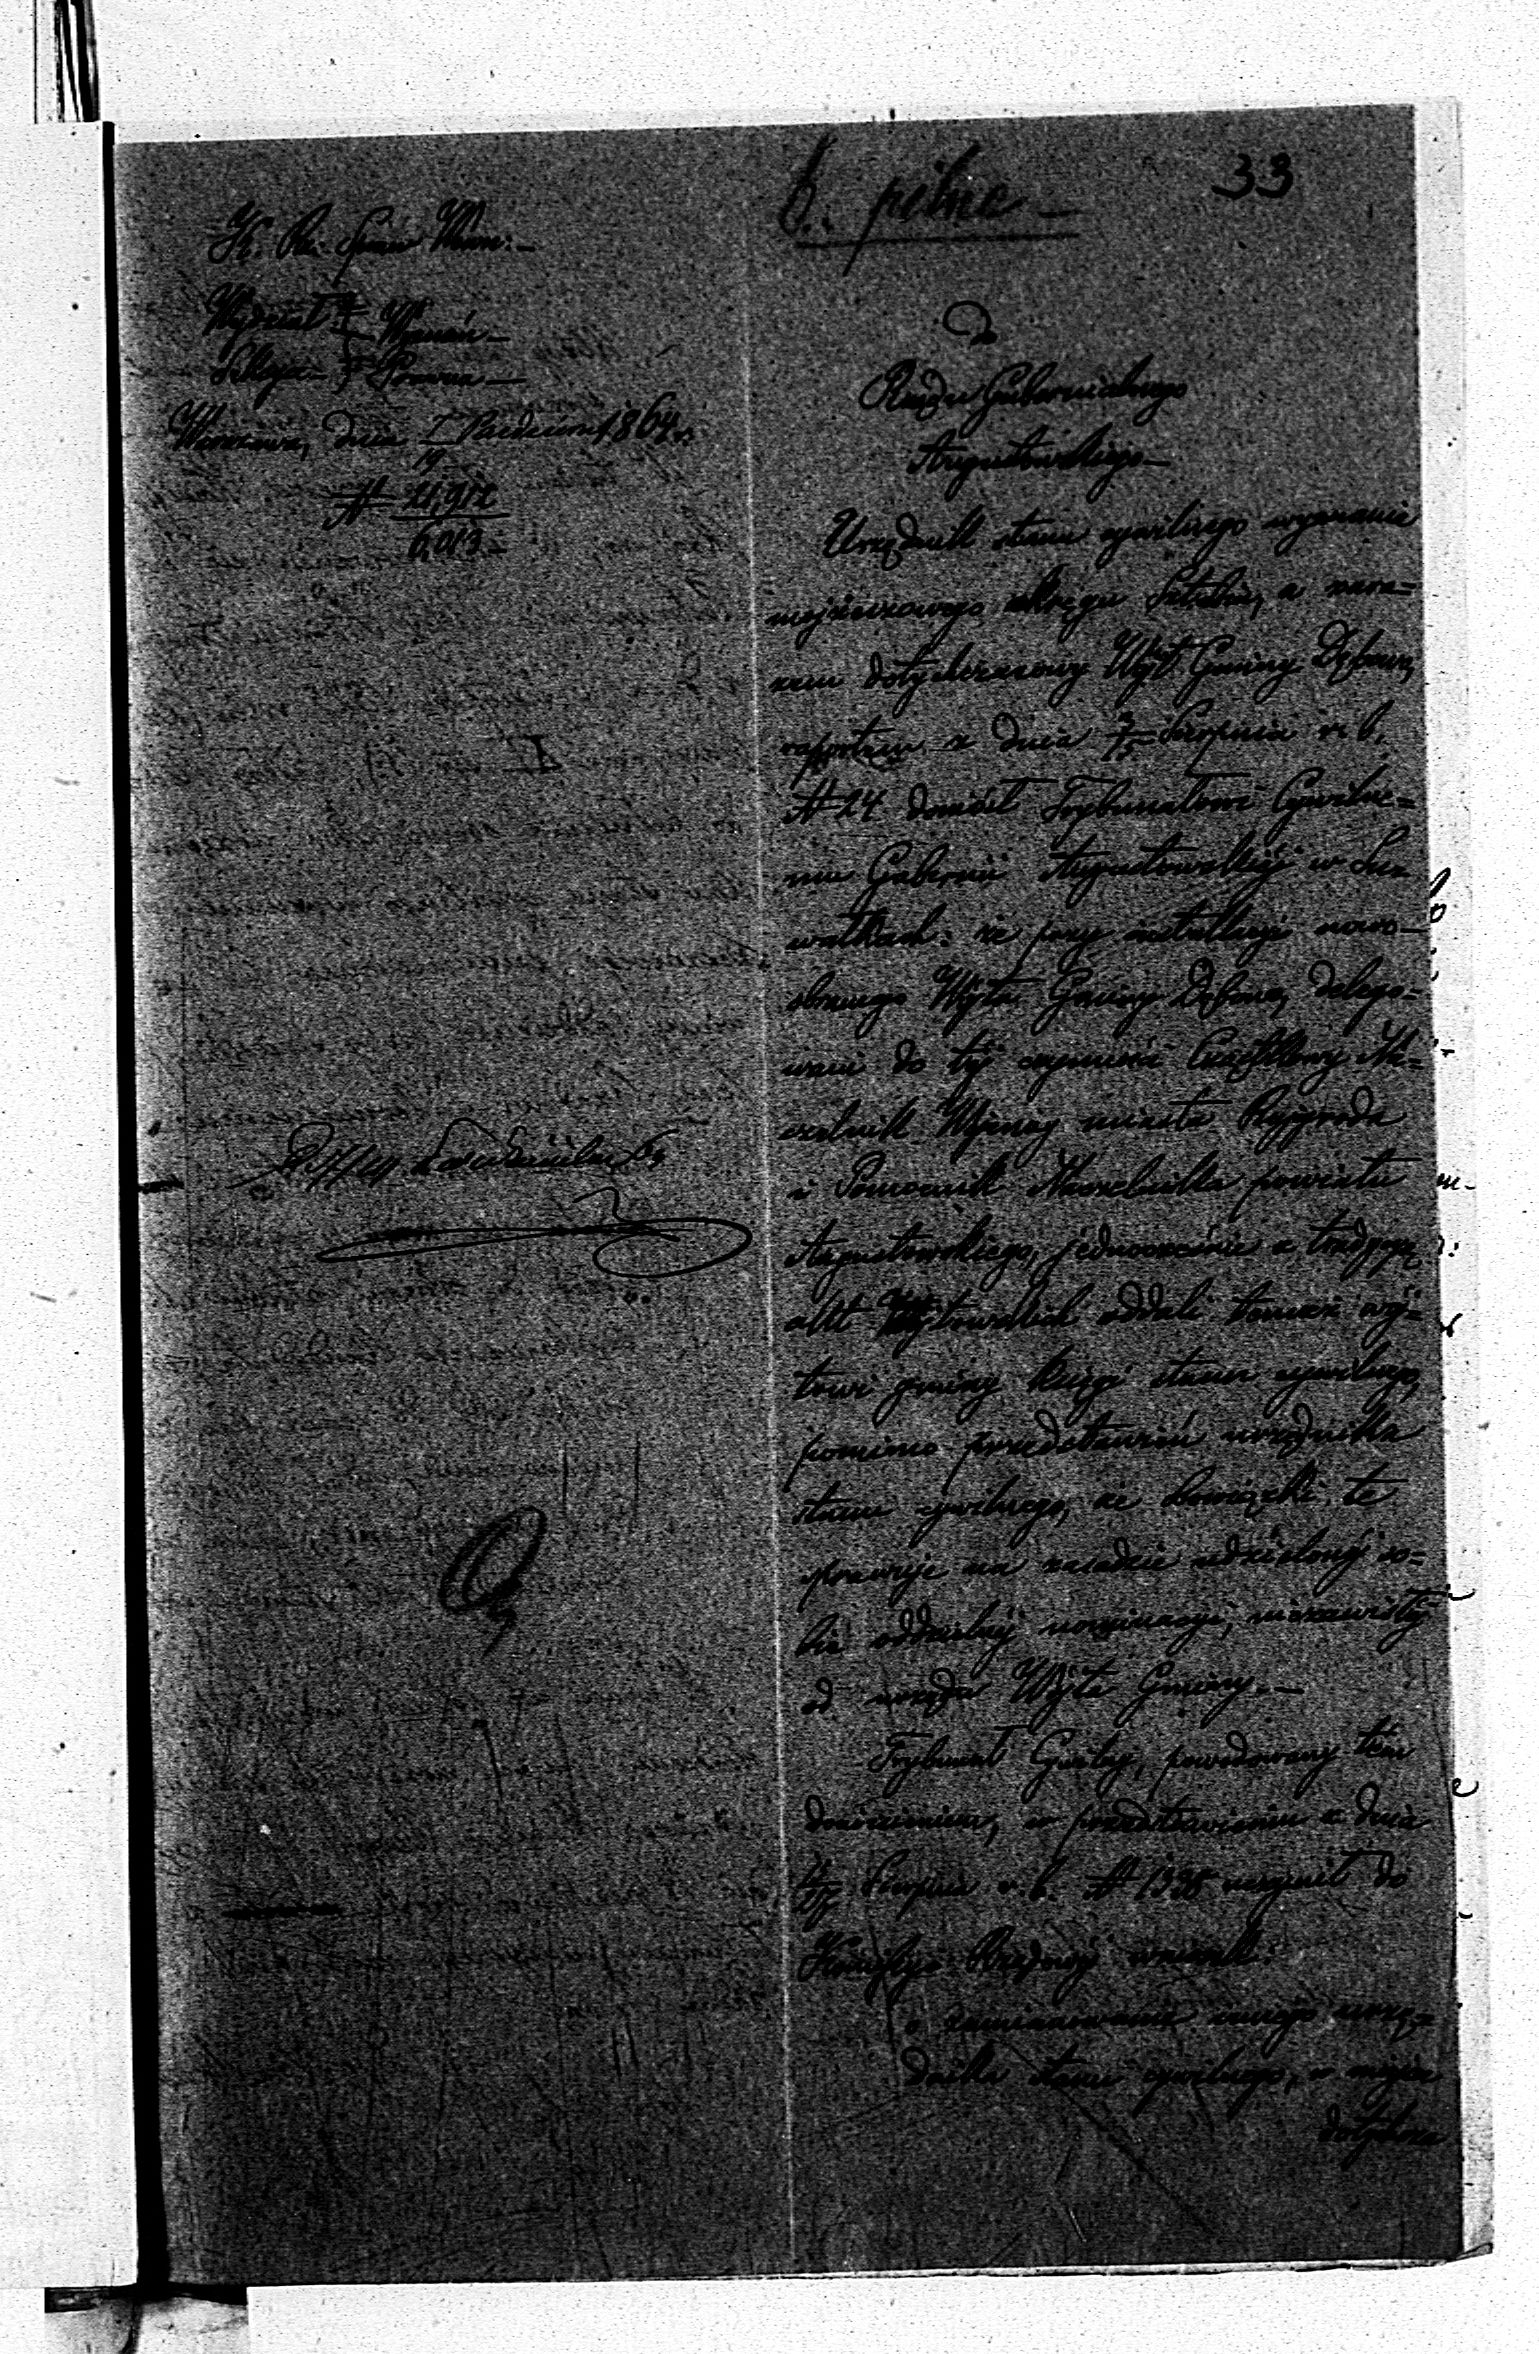 33
b. pilne –
K. Rz. Spraw Wew: –
Wydział Wyznań –
Sekcja Prawna –
Warszawa, dnia Październ: 1864 r.
N
6,013 –
Do
Rządu Gubernialnego
Augustowskiego –
Urzędnik stanu cywilnego wyznania
mojżeszowego okręgu Sztabin, a zara=
zem dotychczasowy Wójt Gminy Dębowo,
rapportem z dnia 3/15 Sierpnia r. b.
N 24 doniósł Trybunałowi Cywilne=
mu Gubernii Augustowskiéj w Su=
wałkach: że przy instalacji nowo–
obranego Wójta Gminy Dębowo, delego=
wani do téj czynności Cząstkowy Na=
czelnik Wojenny miasta Rajgroda
i Pomocnik Naczelnika powiatu
Augustowskiego, jednocześnie z tradycją
akt Wójtowskich oddali temuż wój=
towi gminy księgi stanu cywilnego,
pomimo przedstawień urzędnika
stanu cywilnego, że obowiązki te
sprawuje na zasadzie udzielonéj so=
bie oddzielnéj nominacji, niezawisłéj
od urzędu Wójta Gminy. –
Trybunał Cywilny, powodowany tém
doniesieniem, w przedstawieniu z dnia
Sierpnia r. b. N 1335 uczynił do
Komissyi Rządowéj wniosek:
o zamianowanie innego urzę=
dnika stanu cywilnego, w miejsce
dotychcza